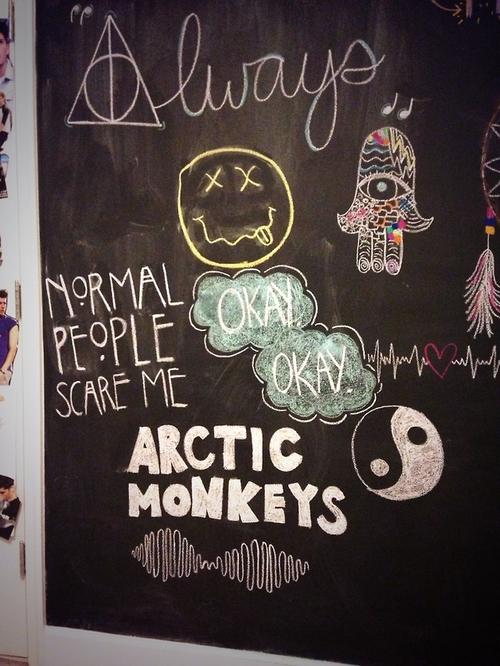 "Always
NORMAL
PEOPLE
SCARE ME
OKAY.
OKAY.
ARCTIC
MONKEYS